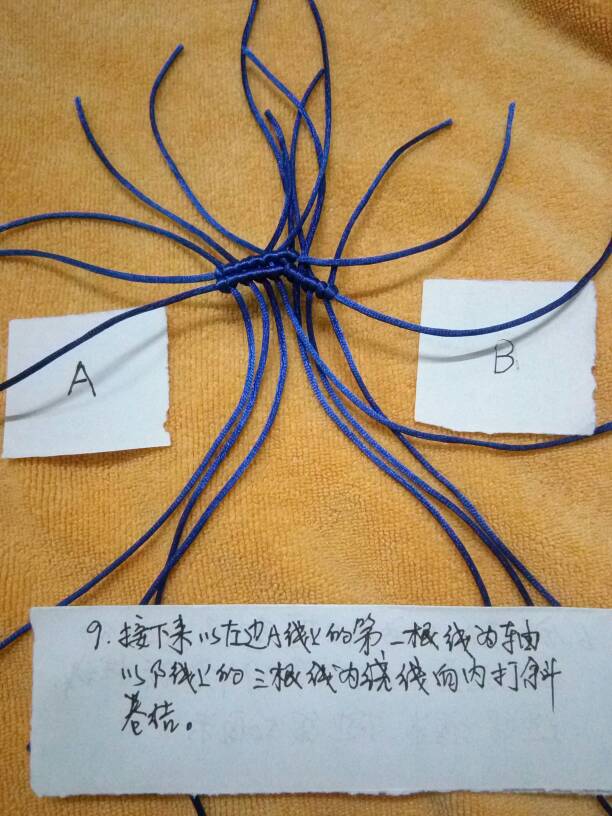 A
B
9. 接下来以左边A线上的第一根线为轴
以B线上的三根线为绕线向内打斜
卷结。